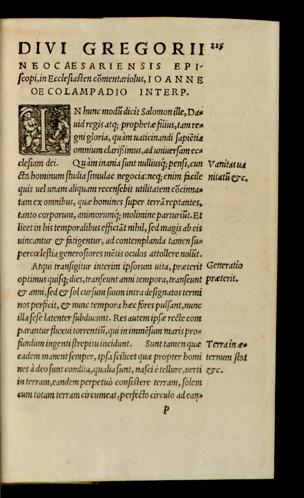 DIVI GREGORII 225
NEOCAESARIENSIS EPI-
scopi, in Ecclesiasten cōmentariolus, IOANNE
OECOLAMPADIO INTERP.
IN hunc modū dicit Salomon ille, Da-
uid regis atq; prophetæ filius, tam re-
gni gloria, quàm uaticinandi sapiẽtia
omnium clarißimus, ad uniuersam ec-
clesiam dei. Quàm inania sunt nulliusq; pensi, cun
cta hominum studia simulac negocia: neq; enim facile
quis uel unam aliquam recensebit utilitatem cõcinna-
tam ex omnibus, quæ homines super terrā reptantes,
tanto corporum, animorumq; molimine parturiūt. Et
licet in his temporalibus efficiāt nihil, sed magis ab eis
uincantur & fatigentur, ad contemplanda tamen su-
percœlestia generosiores mẽtis oculos attollere nolūt.
Vanitas ua
nitatū &c.
Atqui transigitur interim ipsorum uita, præterit
optimus quisq; dies, transeunt anni tempora, transeūt
& anni, sed & sol cursum suum intra designatos termi
nos perficit, & nunc tempora hæc fores pulsant, nunc
illa sese latenter subducunt. Res autem ipsæ recte com
parantur fluxui torrentiū, qui in immẽsum maris pro-
fundum ingenti strepitu incidunt. Sunt tamen quæ
eadem manent semper, ipsa scilicet quæ propter homi
nes à deo sunt condita, qualia sunt, nasci è tellure, uerti
in terram, eandem perpetuò consistere terram, solem
cum totam terram circumeat, perfecto circulo ad ean-
Generatio
præterit.
Terra in æ-
ternum stat
&c.
P